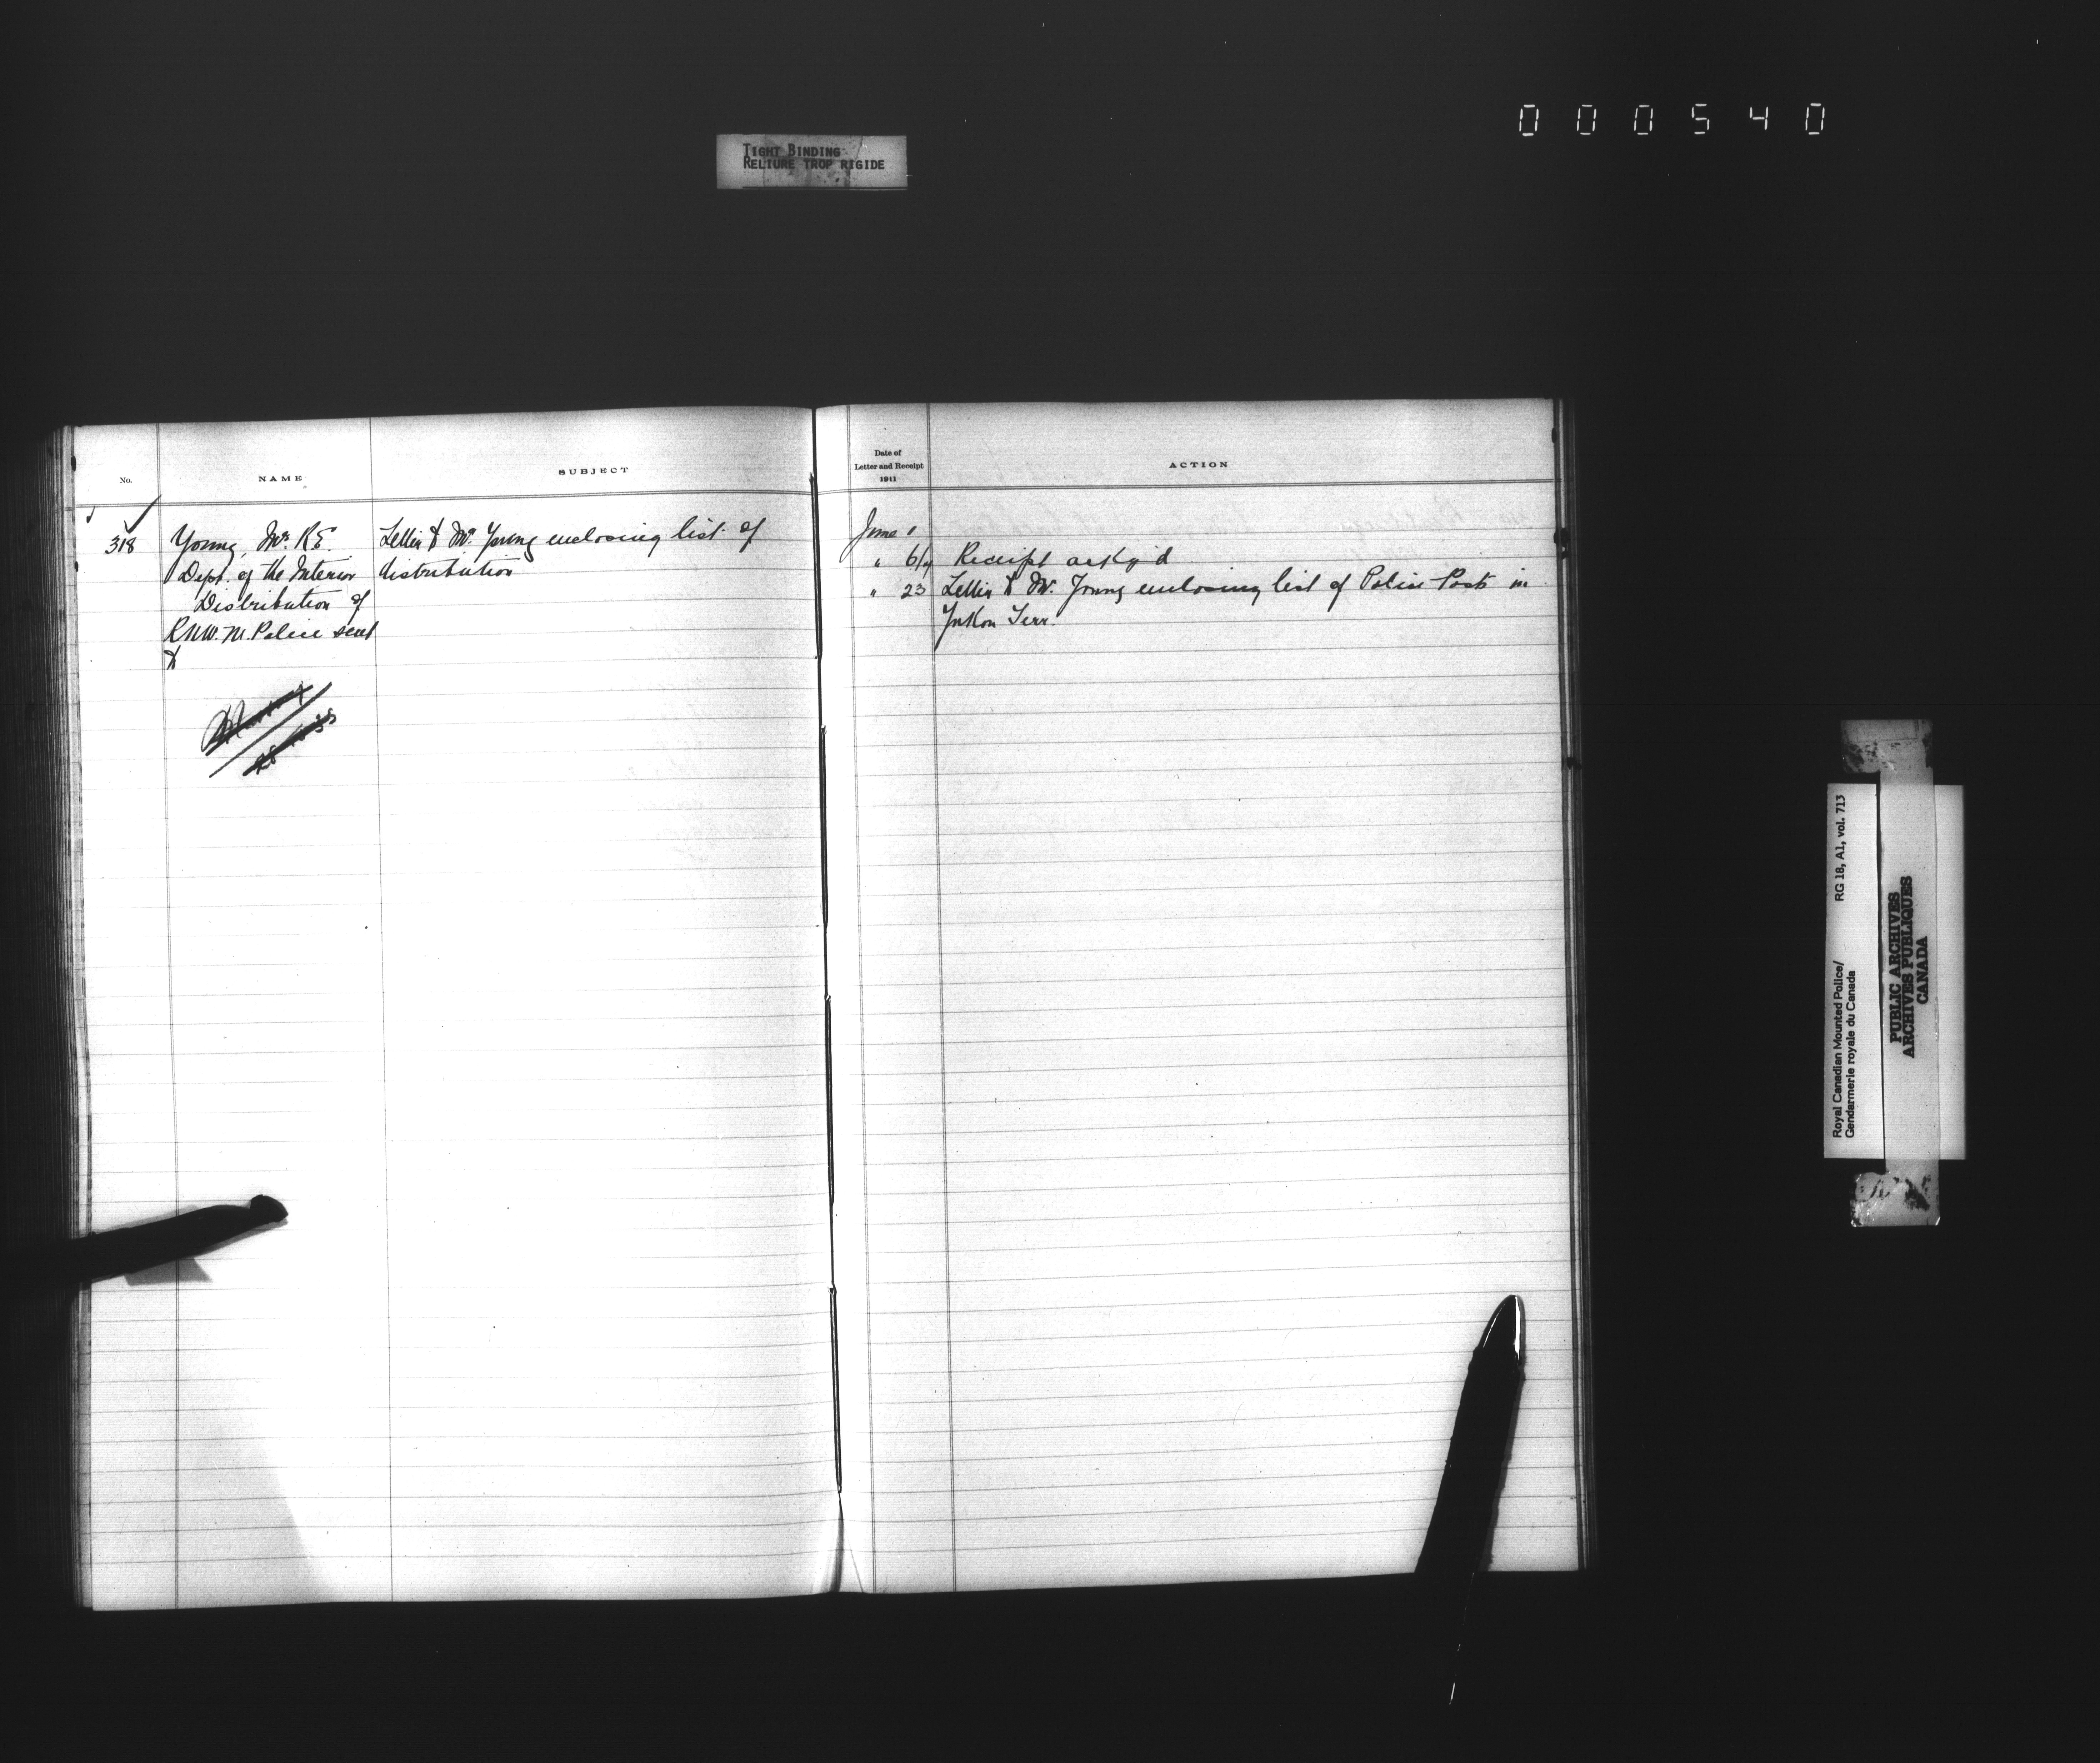 000540
TIGHT BINDING
RELIURE TROP RIGIDE
No.
NAME
SUBJECT
Date of
Letter and Receipt
1911
ACTION
318
Young, Mr. R.E.
Dept. of the Interior
Distribution of
R.N.W.M. Police sent
to
Letter to Mr. Young enclosing list of
distribution
June 1
" 6/7 Receipt ackg'd
" 23 Letter to Mr. Young enclosing list of Police Posts in
Yukon Terr.
Royal Canadian Mounted Police/
Gendarmerie royale du Canada
RG 18, A1, vol. 713
PUBLIC ARCHIVES
ARCHIVES PUBLIQUES
CANADA